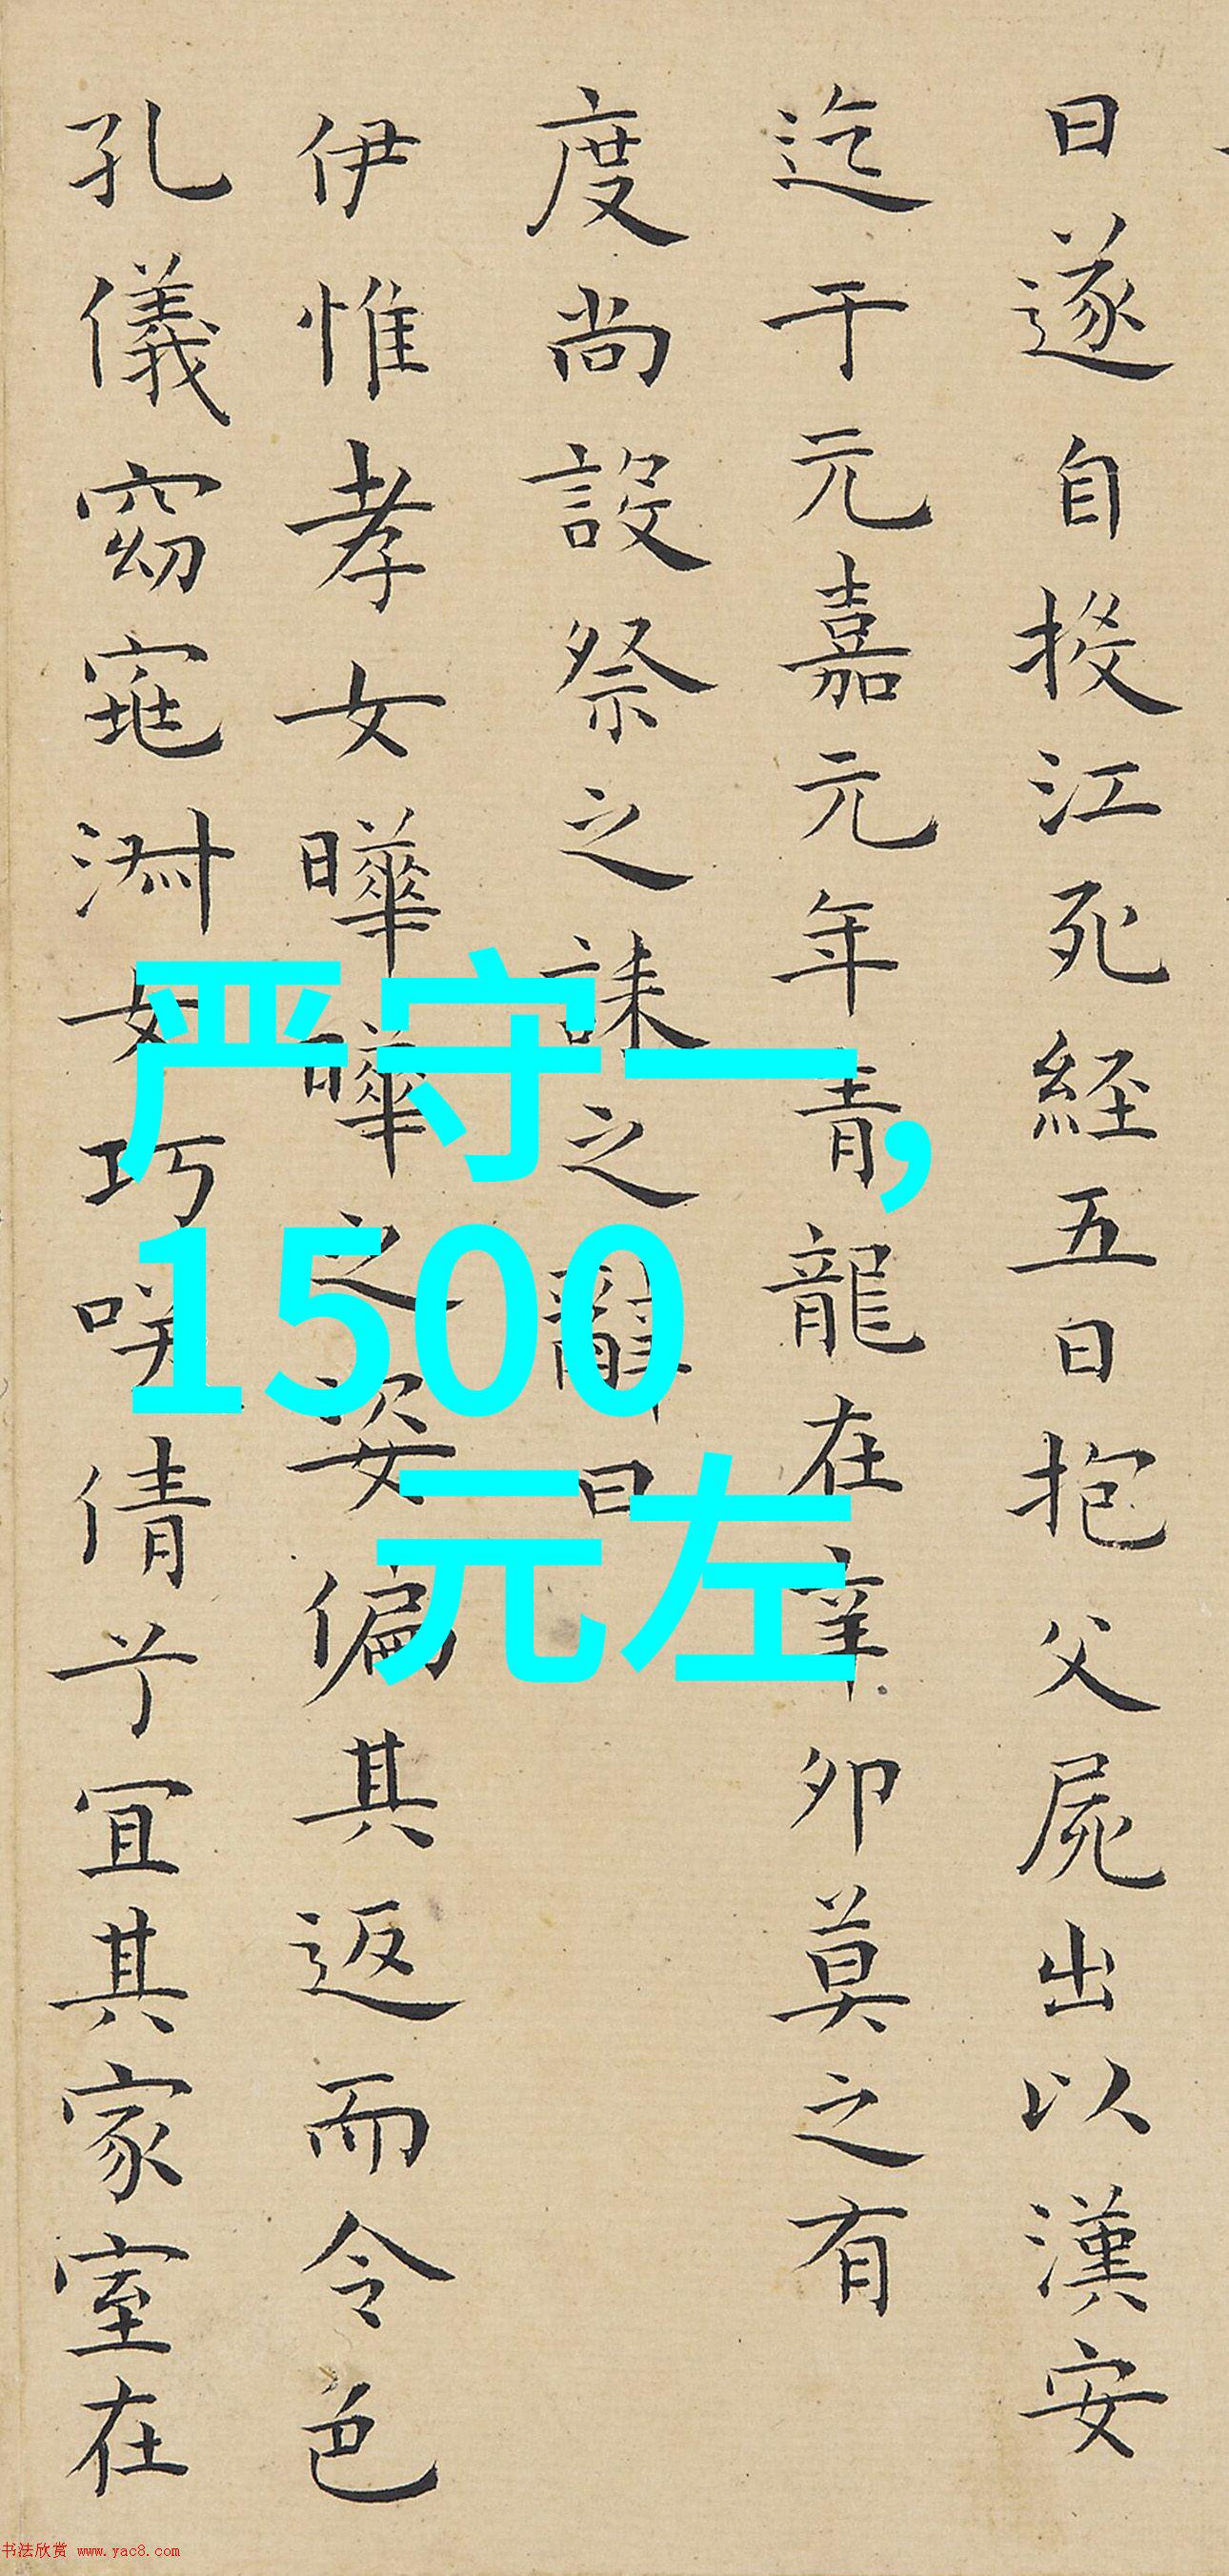 日遂自投江死經五日抱父屍出以漢安
迄于元嘉元年青龍在辛卯莫之有
度尚設祭之誄之辭曰
伊惟孝女曄曄之姿偏其返而令色
孔儀窈窕淑女巧咲倩兮宜其家室在
严守一,
1500
元左
书法欣赏 www.yac8.com